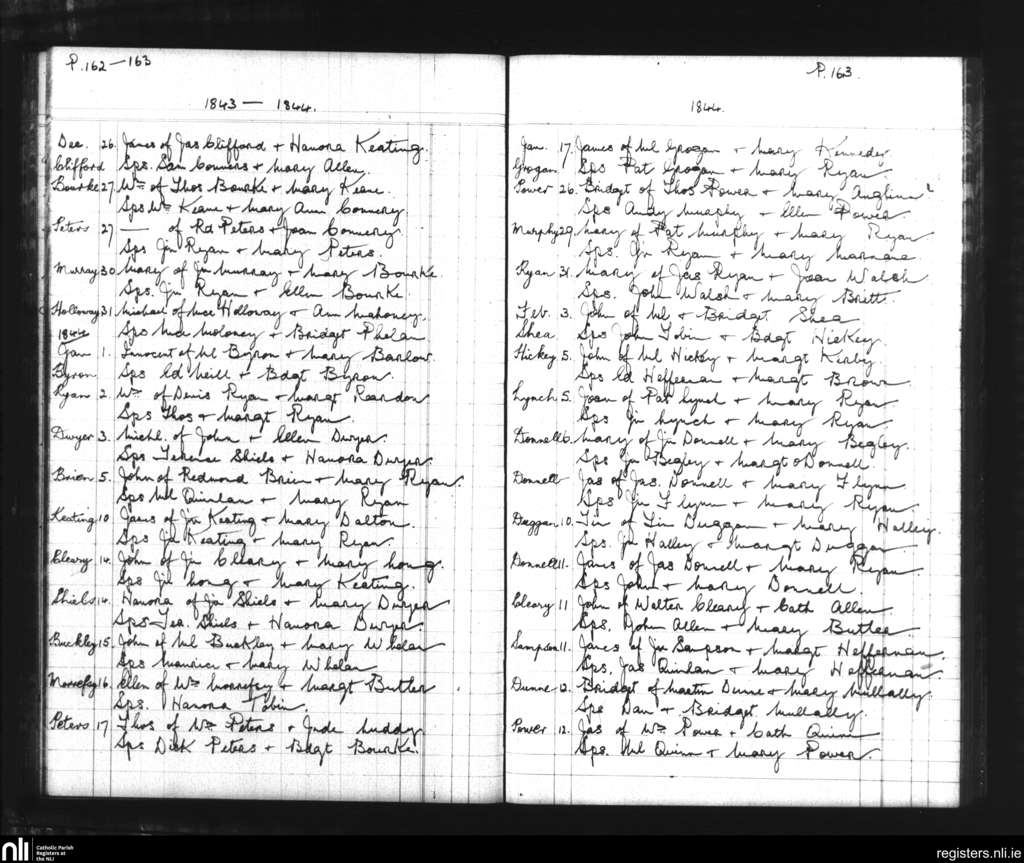 P.162—163
1843 — 1844.
Dec. 26. James of Jas Clifford + Hanora Keating.
Clifford Sps. Dan Connors + Mary Allen.
Bourke 27 Wm of Thos Bourke + Mary Keane.
Sps Wm Keane + Mary Ann Connery.
Peters 27 — of Rd Peters + Joan Connery
Sps Jn Ryan + Mary Peters.
Murray 30 Mary of Jn Murray + Mary Bourke.
Sps. Jn Ryan + Ellen Bourke.
Holloway 31 Michael of Mce Holloway + Ann Mahoney.
1844 Sps Mce Moloney + Bridget Phelan
Jan 1. Innocent of Ml Byron + Mary Barlow.
Byron Sps Ed Neill + Bdgt Byron.
Ryan 2. Wm of Denis Ryan + Margt Reardon
Sps Thos + Margt Ryan.
Dwyer 3. Michl. of John + Ellen Dwyer.
Sps Terence Shiels + Hanora Dwyer.
Brien 5. John of Redmond Brien + Mary Ryan.
Sps Ml Quinlan + Mary Ryan
Keating 10 James of Jn Keating + Mary Dalton.
Sps Jn Keating + Mary Ryan.
Cleary 14. John of Jn Cleary + Mary Long.
Sps Jn Long + Mary Keating.
Shiels 14. Hanora of Jn Shiels + Mary Dwyer
Sps Ter. Shiels + Hanora Dwyer.
Buckley 15. John of Ml Buckley + Mary Whelan
Sps Maurice + Mary Whelan
Morrefy 16. Ellen of Wm Morrefey + Margt Butler
Sps. Hanora Tobin.
Peters 17 Thos of Wm Peters + Jude Luddy.
Sps Dick Peters + Bdgt Bourke.
P.163.
1844.
Jan. 17. James of Ml Grogan + Mary Kennedy
Grogan Sps Pat Grogan + Mary Ryan.
Power 26. Bridget of Thos Power + Mary Anglim?
Sps Andy Murphy + Ellen Power
Murphy 29. Mary of Pat Murphy + Mary Ryan
Sps. Jn Ryan + Mary Marnane
Ryan 31. Mary of Jas Ryan + Joan Walsh
Sps. John Walsh + Mary Britt.
Feb. 3. John of Ml + Bridget Shea
Shea Sps John Tobin + Bdgt Hickey.
Hickey 5. John of Ml Hickey + Margt Kirby
Sps Ed Heffernan + Margt Brown
Lynch 5. Joan of Pat Lynch + Mary Ryan
Sps Jn Lynch + Mary Ryan.
Donnell 6. Mary of Jn Donnell + Mary Begley.
Sps Jn Begley + Margt ODonnell.
Donnell Jas of Jas. Donnell + Mary Flynn
Sps Jn Flynn + Mary Ryan.
Duggan 10. Tim of Tim Duggan + Mary Halley.
Sps. Jn Halley + Margt Duggan
Donnell 11. James of Jas Donnell + Mary Ryan.
Sps John + Mary Donnell
Cleary 11 John of Walter Cleary + Cath Allen
Sps. John Allen + Mary Butler
Sampson 11. James of Jn Sampson + Margt Heffernan.
Sps. Jas Quinlan + Mary Heffernan
Dunne 12. Bridget of Martin Dunne + Mary Mullally.
Sps Dan + Bridget Mullally.
Power 12. Jas of Wm Power + Cath Quinn
Sps. Ml Quinn + Mary Power.
nli Catholic Parish
Registers at
the NLI
registers.nli.ie